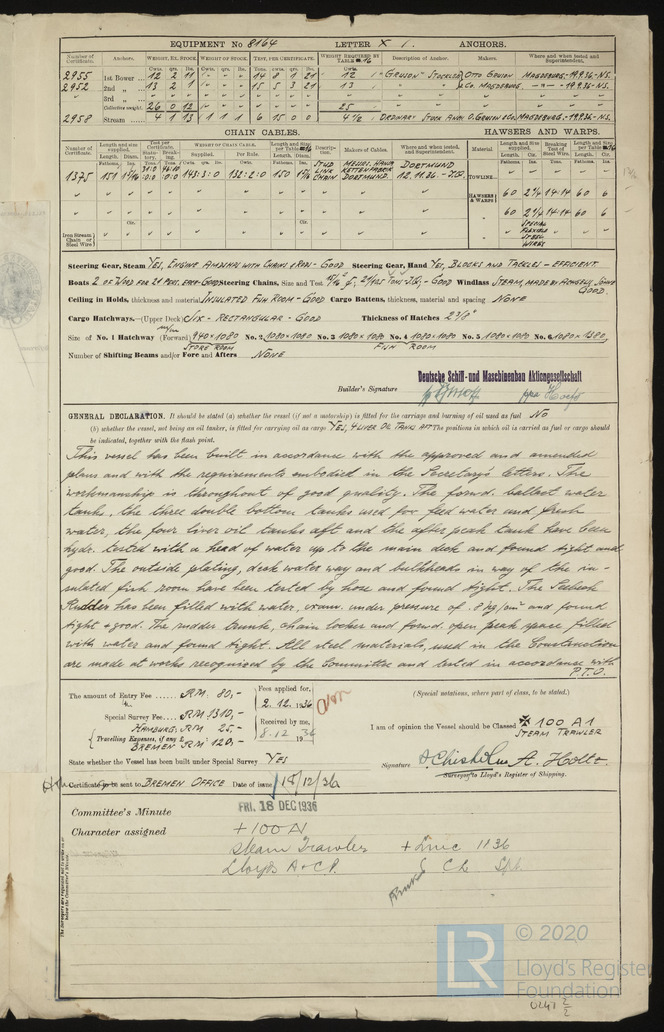 EQUIPMENT No 8164 LETTER X 1. ANCHORS.
Number of Certificate. Anchors. WEIGHT, EX. STOCK. WEIGHT OF STOCK. TEST, PER CERTIFICATE. WEIGHT REQUIRED BY TABLE Description of Anchor. Makers. Where and when tested and Superintendent.
2955 1st Bower 12 2 11 14 8 1 21 12 "GRUSON" STOCKLESS OTTO GRUSON MAGDEBURG 19.9.36-N.S.
2952 2nd " 13 2 1 15 5 3 21 13 & Co. MAGDEBURG. 19.9.36-N.S.
3rd "
Collective weight. 26 0 12 25
2958 Stream 4 1 13 1 1 1 6 15 0 0 4½ ORDINARY STOCK ANCH. O. GRUSON & Co. MAGDEBURG-19.9.36-N.S.
CHAIN CABLES. HAWSERS AND WARPS.
Number of Certificate. Length and size supplied. Test per Certificate. WEIGHT OF CHAIN CABLE. Length and size per Table Description. Makers of Cables. Where and when tested, and Superintendent. Material Length and size supplied. Breaking Test of Steel Wire. Length and size per Table
Fathoms. Diam. Supplied. Per Rule. Length. Diam. Fathoms. Cir. Tons. Fathoms. Ins.
1375 151 143:3:0 132:2:0 150 STUD LINK CHAIN KETTENFABRIK DORTMUND. DORTMUND 12.11.36.
TOWLINE
HAWSERS & WARPS 60 2¼ 14·14 60 6
60 2¼ 14·14 60 6
SPECIAL FLEXIBLE STEEL WIRES
Iron Stream Chain or Steel Wire
Steering Gear, Steam YES, ENGINE AMIDSHIPS WITH CHAINS & RODS - GOOD Steering Gear, Hand YES, BLOCKS AND TACKLES - EFFICIENT.
Boats 2 OF WOOD FOR 24 PERS. EACH - GOOD Steering Chains, Size and Test GOOD Windlass STEAM, MADE BY GOOD.
Ceiling in Holds, thickness and material INSULATED FISH ROOM - GOOD Cargo Battens, thickness, material and spacing NONE
Cargo Hatchways.—(Upper Deck) SIX - RECTANGULAR - GOOD Thickness of Hatches 2 3/8"
Size of No. 1 Hatchway (Forward) 940×1080 No. 2 1080×1080 No. 3 1080×1080 No. 4 1080×1080 No. 5 1080×1080 No. 6 1080×1380
STORE ROOM FISH ROOM
Number of Shifting Beams and/or Fore and Afters NONE
Deutsche Schiff- und Maschinenbau Aktiengesellschaft
Builder's Signature
GENERAL DECLARATION. It should be stated (a) whether the vessel (if not a motorship) is fitted for the carriage and burning of oil used as fuel NO
(b) whether the vessel, not being an oil tanker, is fitted for carrying oil as cargo YES, 4 LIVER OIL TANKS AFT The positions in which oil is carried as fuel or cargo should
be indicated, together with the flash point.
This vessel has been built in accordance with the approved and amended
plans and with the requirements embodied in the Secretary's letters. The
workmanship is throughout of good quality. The forwd. ballast water
tank, the three double bottom tanks used for feed water and fresh
water, the four liver oil tanks aft and the after peak tank have been
hydr. tested with a head of water up to the main deck and found tight and
good. The outside plating, deck water way and bulkheads in way of the in-
sulated fish room have been tested by hose and found tight. The Seebeck
Rudder has been filled with water, exam. under pressure of .2 kg/cm² and found
tight & good. The rudder trunk, chain locker and forwd. open peak space filled
with water and found tight. All steel materials, used in the Construction
are made at works recognised by the Committee and tested in accordance with
P.T.O.
The amount of Entry Fee R.M. 80,-
Special Survey Fee RM 1310,-
HAMBURG: RM 25,-
Travelling Expenses, if any BREMEN RM 120,-
Fees applied for, 2.12.1936
Received by me, 8.12.1936
(Special notations, where part of class, to be stated.)
I am of opinion the Vessel should be Classed ✠ 100 A1
STEAM TRAWLER
State whether the Vessel has been built under Special Survey YES
Signature A. Chisholm A. Holtz.
Surveyor to Lloyd's Register of Shipping.
Certificate to be sent to BREMEN OFFICE Date of issue 18/12/36
Committee's Minute FRI. 18 DEC 1936
Character assigned + 100 A1
Steam Trawler + LMC 11 36
Lloyds A & C P. CL
The Surveyors are requested not to write on or below the Committee's Minute.
LR
© 2020
Lloyd's Register
Foundation